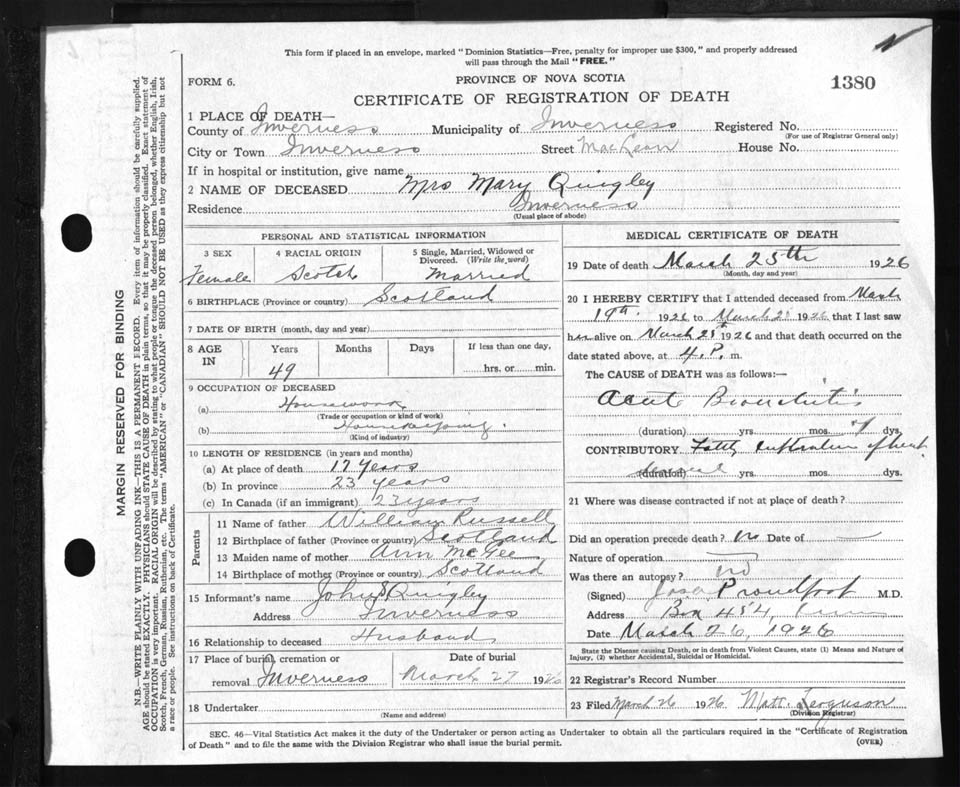 This form if placed in an envelope, marked "Dominion Statistics—Free, penalty for improper use $300," and properly addressed
will pass through the Mail "FREE."
FORM 6.
PROVINCE OF NOVA SCOTIA
1380
CERTIFICATE OF REGISTRATION OF DEATH
1 PLACE OF DEATH—
County of Inverness Municipality of Inverness Registered No.
(For use of Registrar General only)
City or Town Inverness Street MacLean House No.
If in hospital or institution, give name
2 NAME OF DECEASED Mrs Mary Quigley
Residence Inverness
(Usual place of abode)
PERSONAL AND STATISTICAL INFORMATION
3 SEX 4 RACIAL ORIGIN 5 Single, Married, Widowed or
Divorced. (Write the word)
Female Scotch Married
6 BIRTHPLACE (Province or country) Scotland
7 DATE OF BIRTH (month, day and year)
8 AGE IN Years Months Days If less than one day,
49 hrs. or min.
9 OCCUPATION OF DECEASED
(a) Housework
(Trade or occupation or kind of work)
(b) Housekeeping
(Kind of industry)
10 LENGTH OF RESIDENCE (in years and months)
(a) At place of death 17 years
(b) In province 23 years
(c) In Canada (if an immigrant) 23 years
Parents
11 Name of father William Russell
12 Birthplace of father (Province or country) Scotland
13 Maiden name of mother Ann McGee
14 Birthplace of mother (Province or country) Scotland
15 Informant's name John S Quigley
Address Inverness
16 Relationship to deceased Husband
17 Place of burial, cremation or Date of burial
removal Inverness March 27 1926
18 Undertaker
(Name and address)
MEDICAL CERTIFICATE OF DEATH
19 Date of death March 25th 1926
(Month, day and year)
20 I HEREBY CERTIFY that I attended deceased from March
19th 1926 to March 25 1926 that I last saw
her alive on March 25th 1926 and that death occurred on the
date stated above, at 4 P. m.
The CAUSE of DEATH was as follows:—
Acute Bronchitis
(duration) yrs. mos. 7 dys.
CONTRIBUTORY Fatty infiltration of heart
(duration) several yrs. mos. dys.
21 Where was disease contracted if not at place of death?
Did an operation precede death? no Date of
Nature of operation
Was there an autopsy? no
(Signed) Proudfoot M.D.
Address Box 454,
Date March 26, 1926
State the Disease causing Death, or in death from Violent Causes, state (1) Means and Nature of
Injury, (2) whether Accidental, Suicidal or Homicidal.
22 Registrar's Record Number
23 Filed March 26 1926 Matt. Ferguson
(Division Registrar)
SEC. 46—Vital Statistics Act makes it the duty of the Undertaker or person acting as Undertaker to obtain all the particulars required in the "Certificate of Registration
of Death" and to file the same with the Division Registrar who shall issue the burial permit. (OVER)
MARGIN RESERVED FOR BINDING
N.B.—WRITE PLAINLY WITH UNFADING INK—THIS IS A PERMANENT RECORD. Every item of information should be carefully supplied.
AGE should be stated EXACTLY. PHYSICIANS should STATE CAUSE OF DEATH in plain terms, so that it may be properly classified. Exact statement of
OCCUPATION is very important. RACIAL ORIGIN will be described by stating to what people or tongue the deceased person belonged, whether English, Irish,
Scotch, French, German, Russian, Ruthenian, etc. The terms "AMERICAN" or "CANADIAN" SHOULD NOT BE USED as they express citizenship but not
a race or people. See instructions on back of Certificate.